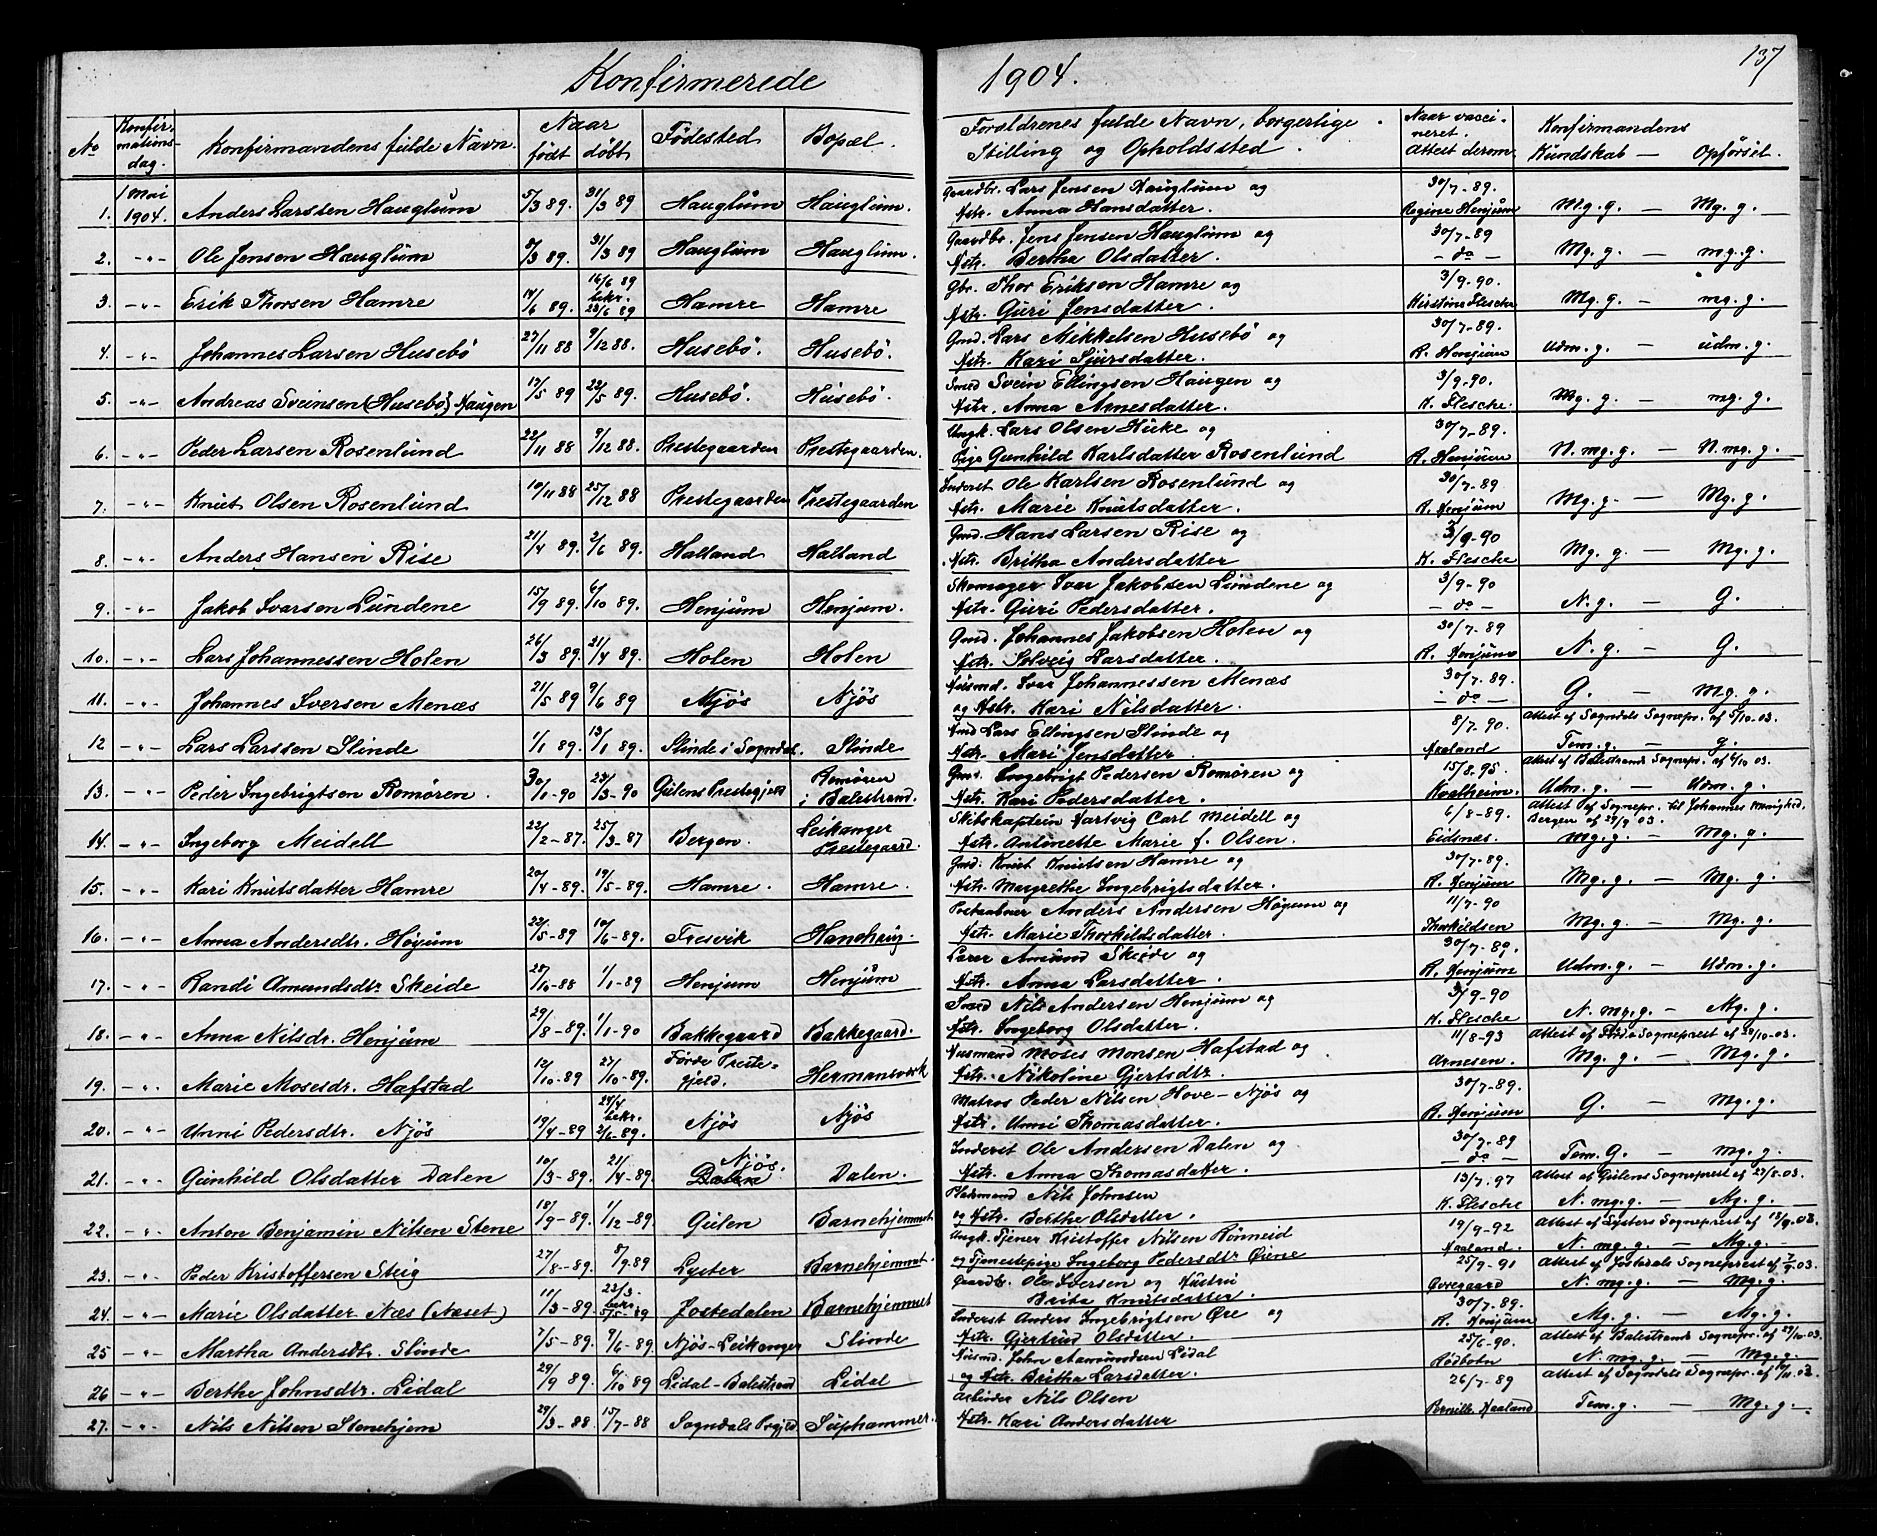 137
Konfirmerede 1904.
No Konfirmationsdag. Konfirmandens fulde Navn. Naar født døbt Fødested Bopæl. Forældrenes fulde Navn, borgerlige Stilling og Opholdssted. Naar vaccineret. Attest derom. Konfirmandens Kundskab — Opførsel.
1. 1 Mai 1904. Anders Larssen Hauglum 5/3 89. 31/3 89 Hauglum Hauglum. Gaardbr. Lars Jensen Hauglum og Hstr. Anna Hansdatter. 30/7-89. Regine Henjum Mg. g. — Mg. g.
2. -"- Ole Jensen Hauglum 5/3 89. 31/3 89 Hauglum Hauglum. Gaardbr. Jens Jensen Hauglum og Hstr. Bertha Olsdatter. 30/7-89 — do — Mg. g. — mg. g.
3. -"- Erik Thorsen Hamre 14/6 89. 16/6 89 bekr. 23/6 89 Hamre Hamre Gbr. Thor Eriksen Hamre og Hstr. Guri Jensdatter. 3/9-90. Kirstine Flesche Mg. g. — mg. g.
4. -"- Johannes Larsen Husebö 27/11 88 9/12 88. Husebö. Husebö. Gmd. Lars Mikkelsen Husebö og Hstr. Kari Sjursdatter. 30/7-89. R. Henjum Udm. g. — udm. g.
5. -"- Andreas Sveinsen (Husebö) Haugen 17/5 89 22/5 89. Husebö. Husebö. Smed Svein Ellingsen Haugen og Hstr. Anna Arnesdatter. 3/9-90. K. Flesche. Mg. g. — mg. g.
6. -"- Peder Larsen Rosenlund 22/11 88 9/12 88. Prestegaarden Prestegaarden. Ungk. Lars Olsen Huke og Pige Gunhild Karlsdatter Rosenlund 30/7-89. R. Henjum N. mg. g. — N. mg. g.
7. -"- Knut Olsen Rosenlund 10/11 88 25/12 88 Prestegaarden Prestegaarden Inderst Ole Karlsen Rosenlund og Hstr. Marie Knutsdatter. 30/7-89 R. Henjum Mg. g. — Mg. g.
8. -"- Anders Hansen Rise 21/4 89. 2/6 89. Halland Halland Gmd. Hans Larsen Rise og Hstr. Britha Andersdatter 3/9-90 K. Flesche Mg. g. — Mg. g.
9. -"- Jakob Ivarsen Lundene 15/9 89. 6/10 89. Henjum Henjum. Skomager Ivar Jakobsen Lundene og Hstr. Guri Pedersdatter. 3/9-90 — do — N. g. — G.
10. -"- Lars Johannessen Holen 26/3 89. 21/4 89. Holen Holen Gmd. Johannes Jakobsen Holen og Hstr. Solveig Larsdatter. 30/7-89 R. Henjum N. g. — G.
11. -"- Johannes Iversen Menæs 21/5 89 9/6 89 Njös Njös Husmd. Ivar Johannessen Menæs og Hstr. Kari Nilsdatter. 30/7-89. — do — G. — Mg. g.
12 -"- Lars Larssen Slinde 1/1 89. 13/1 89. Slinde i Sogndal. Slinde Gmd Lars Ellingsen Slinde og Hstr. Mari Jensdatter 8/7-90. Aaland Attest af Sogndals Sognepr. af 5/10-03. Tem. g. — g.
13. -"- Peder Ingebrigtsen Romören. 30/1-90 23/3-90 Gulens Prestegjeld Romören i Balestrand. Gmd. Ingebrigt Pedersen Romören og Hstr. Kari Pedersdatter. 15/8-95. Kvalheim. Attest af Balestrands Sognepr. af 4/10 03. Udm. g. — Udm. g.
14. -"- Ingeborg Meidell 22/2-87. 25/3-87 Bergen. Leikanger Prestegaard. Skibskaptein Hartvig Carl Meidell og Hstr. Antonette Marie f. Olsen. 6/8-89. Eidsnæs. Attest af Sognepr. til Johannes Menighed. Bergen af 29/9 03. Mg. g. — Mg. g.
15. -"- Kari Knutsdatter Hamre 20/4-89. 19/5-89. Hamre. Hamre. Gmd. Knut Knutsen Hamre og Hstr. Margrethe Ingebrigtsdatter. 30/7-89. R. Henjum Mg. g. — Mg. g.
16. -"- Anna Andersdtr. Höyum 22/5-89 10/6-89. Fresvik Hanehaug Postaabner Anders Andersen Höyum og Hstr. Marie Thorkildsdatter. 11/7-90 Thorkildsen Mg. g. — Mg. g.
17. -"- Randi Amundsdtr Skeide 28/10-88 1/1-89 Henjum Henjum Lærer Amund Skeide og Hstr. Anna Larsdatter. 30/7-89. R. Henjum Udm. g. — Udm. g.
18. -"- Anna Nilsdr. Henjum 29/8-89. 1/1-90 Bakkegaard Bakkegaard. Smed Nils Andersen Henjum og Hstr. Ingeborg Olsdatter. 3/9-90 K. Flesche N. mg. g. — Mg. g.
19. -"- Marie Mosesdr. Hafstad 12/10-89 27/10-89. Förde Prestegjeld. Hermansverk Husmand Moses Monsen Hafstad og Hstr. Nikoline Gjertsdtr. 11/8-93 Arnesen. Attest af Förde Sogneprest af 20/10-03. Mg. g. — Mg. g.
20. -"- Unni Pedersdtr. Njös 19/4-89 24/4 bekr. 2/6-89. Njös Njös Matros Peder Nilsen Hove-Njös og Hstr. Unni Thomasdatter. 30/7-89. R. Henjum G. — Mg. g.
21. -"- Gunhild Olsdatter Dalen 10/3-89. 21/4-89 Njös. Dalen Dalen. Inderst Ole Andersen Dalen og Hstr. Anna Thomasdatter. 30/7-89 — do — Tem. G. — mg. g.
22. -"- Anton Benjamin Nilsen Stene 18/9-89. 1/12-89 Gulen Barnehjemmet. Pladsmand Nils Johnsen og Hstr. Berthe Olsdatter. 13/7-97 K. Flesche Attest af Gulens Sogneprest af 27/8-03. N. mg. g. — Mg. g.
23. -"- Peder Kristoffersen Skig 27/8-89. 8/9-89 Lyster Barnehjemmet. Ungk. Tjener Kristoffer Nilsen Rönneid og Tjenestepige Ingeborg Pedersdtr Öiene 19/9-92 Aaland. Attest af Lysters Sogneprest af 13/9-03. N. mg. g. — Mg. g.
24. -"- Marie Olsdatter Næs (Næset) 11/3-89. 23/3- bekr. 5/5-89 Jostedalen Barnehjemmet Gaardb. Ole Iversen og Hustru Brita Knutsdatter. 25/9-91 Övregaard Attest af Jostedals Sogneprest af 7/9-03. N. mg. g. — Mg. g.
25 -"- Martha Andersdtr. Slinde 7/5-89. 9/6-89. Njös-Leikanger Slinde Inderst Anders Ingebrigtsen Öre og Hstr. Gjertrud Olsdatter. 30/7-89. R. Henjum Mg. g. — Mg. g.
26 -"- Berthe Johnsdtr. Lidal 29/9 89. 6/10 89 Lidal-Balestrand Lidal Husmd. John Aamundsen Lidal og Hstr. Britha Larsdatter. 25/6-90. Rödbotn Attest af Balestrands Sognepr. af 29/10-03. N. mg. g. — Mg. g.
27. -"- Nils Nilsen Stenehjem 29/3-88. 15/7-88 Sogndals Prgjld. Suphammer. Arbeider Nils Olsen Hstr. Kari Andersdatter 26/7-89 Pernille Aaland Attest af Sogndals Sognepr. af Tem. g. — Mg. g.